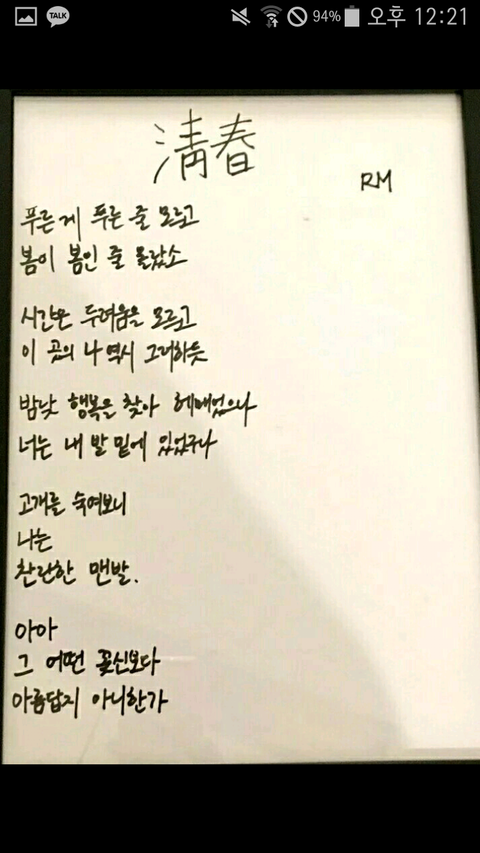 TALK
94%
오후 12:21
清春
RM
푸른 게 푸른 줄 모르고
봄이 봄인 줄 몰랐소
시간은 두려움을 모르고
이 곳의 나 역시 그러하듯
밤낮 행복을 찾아 헤매었으나
너는 내 발 밑에 있었구나
고개를 숙여보니
나는
찬란한 맨발.
아아
그 어떤 꽃신보다
아름답지 아니한가